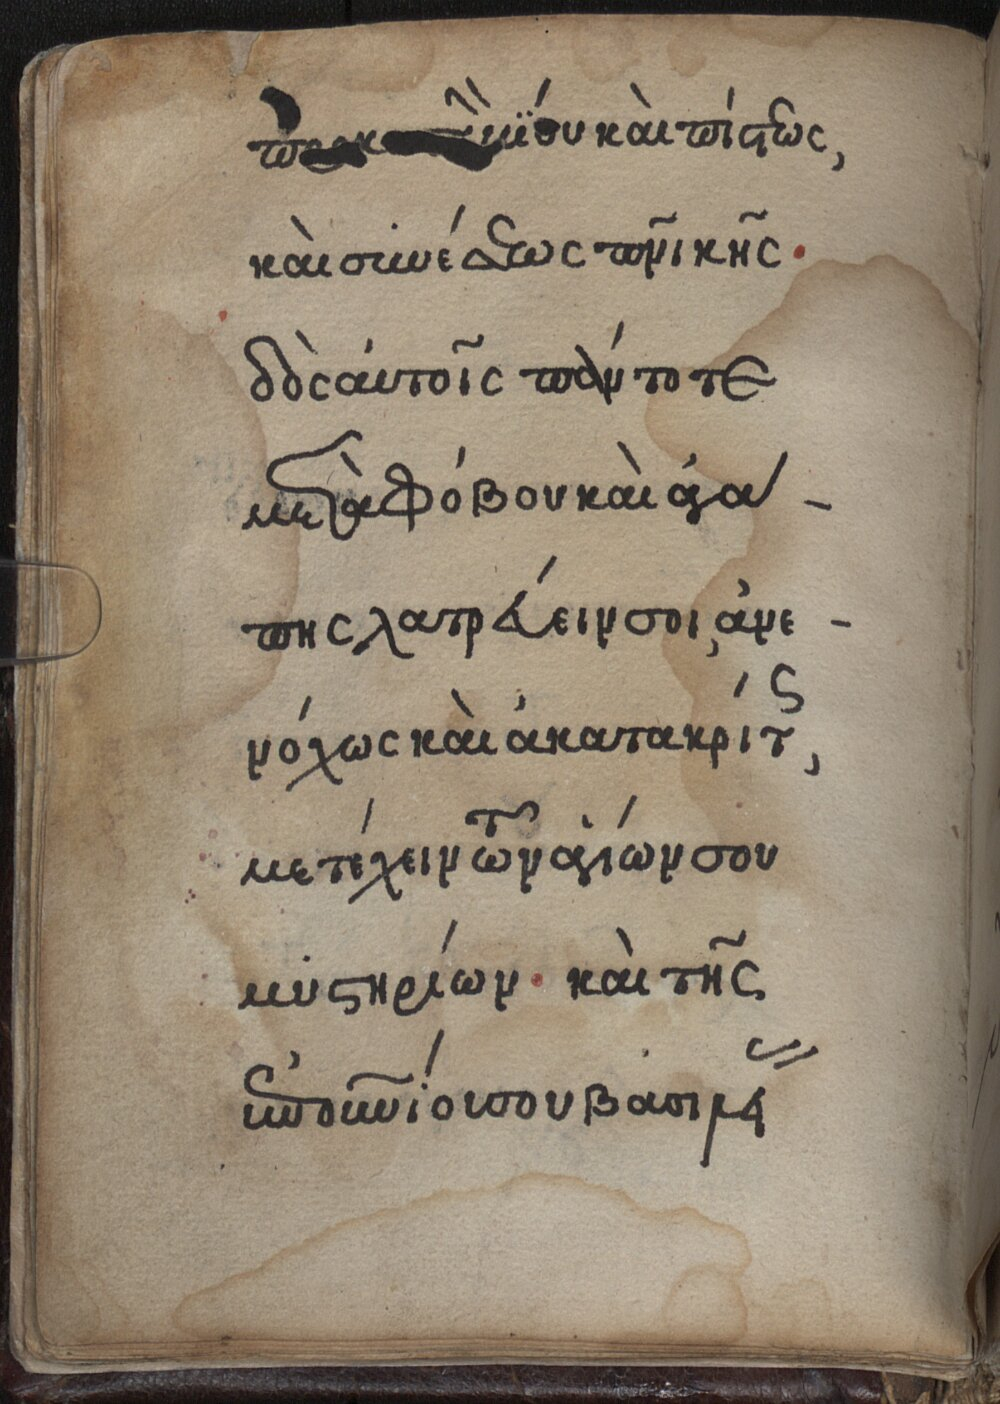 καὶ πίστεως,
καὶ συνέσεως πν̅ικῆς·
δὸς αὐτοῖς πάντοτε
μετὰ φόβου καὶ ἀγά-
πης λατρεύειν σοι, ἀνε-
νόχως καὶ ἀκατακρίτως,
μετέχειν τῶν ἁγίων σου
μυστηρίων· καὶ τῆς
ἐπουρανίου σου βασιλεί